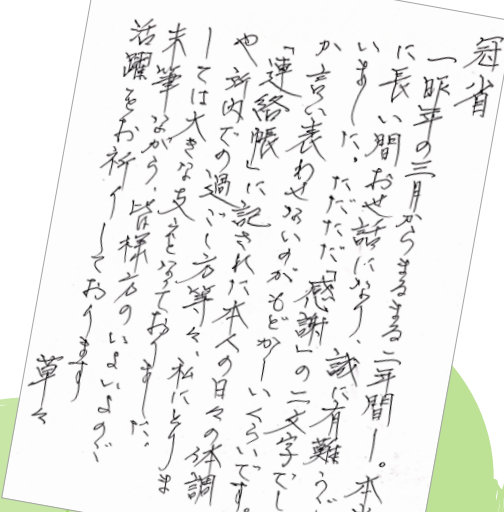 冠省
一昨年の三月からまるまる二年間。本当
に長い間お世話になり、誠に有難うござ
いました。ただただ「感謝」の二文字でし
か言い表わせないのがもどかしいくらいです。
「連絡帳」に記された本人の日々の体調
や所内での過ごし方等々、私にとりま
しては大きな支えとなっておりました。
末筆ながら、皆様方のいよいよのご
活躍をお祈りしております
草々